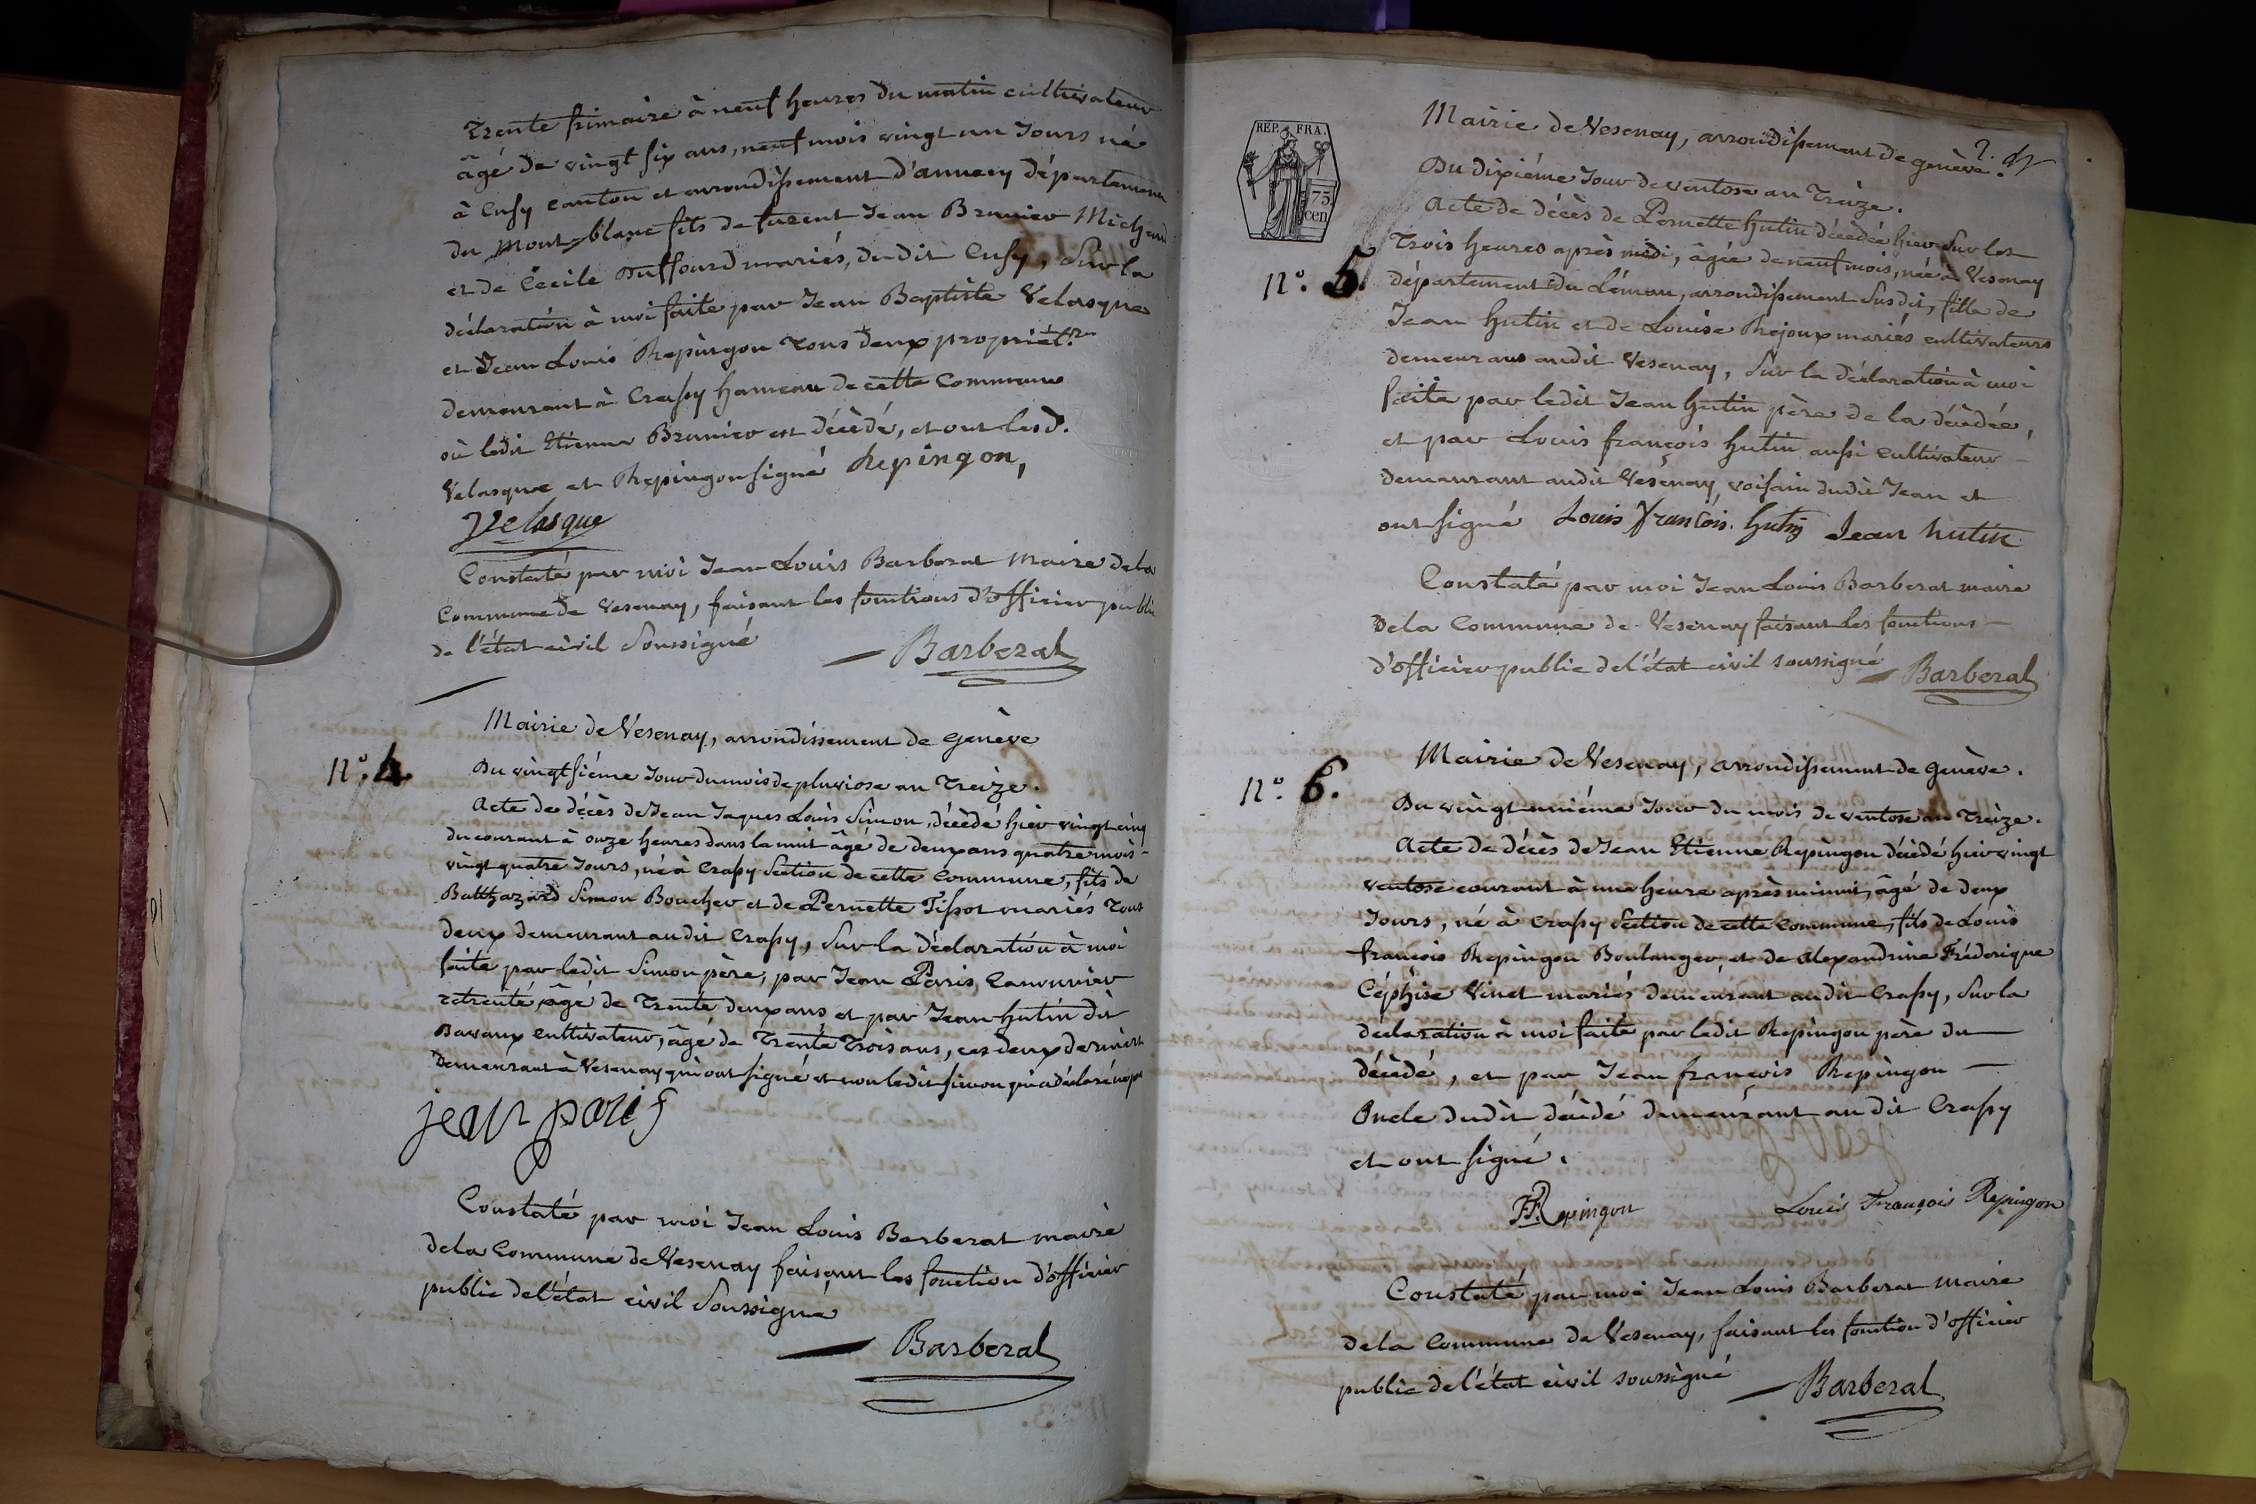 trente frimaire à neuf heures du matin cultivateur
âgé de vingt six ans, neuf mois vingt un Jours né
à Cusy canton et arrondissement d'annecy département
du Mont-blanc fils de furent Jean Brunier Michaud
et de Cécile Duffourd mariés, dudit Cusy, Sur la
déclaration à moi faite par Jean Baptiste Velasque
et Jean Louis Repingon tous deux propriét.res
demeurant à Crassy hameau de cette Commune
où ledit Etienne Brunier est décèdé, et ont lesd.
Velasque et Repingon signé Repingon,
Velasque
Constaté par moi Jean Louis Barberat Maire de la
Commune de Vesenay, faisant les fonctions d'officier public
de l'état civil Soussigné Barberat
Mairie de Vesenay, arrondissement de genève
N.º 4.
Du vingt siéme Jour du mois de pluviose an Treize.
Acte de décès de Jean Jaques Louis Simon, décèdé hier vingt cinq
du courant à onze heures dans la nuit âgé de deux ans quatre mois
vingt quatre Jours, né à Crassy Section de cette Commune, fils de
Balthazard Simon Boucher et de Pernette Tissot mariés tous
deux demeurant audit Crassy, Sur la déclaration à moi
faite par ledit Simon père, par Jean Paris, Canonnier
retraité, âgé de trente deux ans et par Jean hutin dit
Bavaux cultivateur, âgé de Trente trois ans, ces deux derniers
demeurant à Vesenay qui ont signé et non ledit simon qui a déclaré ne
jean paris
Constaté par moi Jean Louis Barberat maire
de la Commune de Vesenay faisant les fonction d'officier
public de l'état civil Soussigné
Barberat
2.
Mairie de Vesenay, arrondissement de genève.
REP. FRA.
75 cen
Du dixiéme Jour de ventose an Treize.
Acte de décès de Pernette hutin décèdée hier Sur les
N.º 5.
trois heures après midi, âgée de neuf mois, née à Vesenay
département du Léman, arrondissement Susdit, fille de
Jean hutin et de Louise Rejoux mariés cultivateurs
demeurans audit Vesenay, Sur la déclaration à moi
faite par ledit Jean hutin père de la décèdée,
et par Louis françois hutin aussi cultivateur
demeurant audit Vesenay, voisin dudit Jean et
ont signé Louis François. hutin Jean hutin
Constaté par moi Jean Louis Barberat maire
de la Commune de Vesenay faisant les fonctions
d'officier public de l'état civil soussigné Barberat
Mairie de Vesenay, arrondissement de genève.
N.º 6.
Du vingt uniéme Jour du mois de ventose an Treize.
Acte de décès de Jean Etienne Repingon décèdé hier vingt
ventose courant à une heure après minuit, âgé de deux
Jours, né à Crassy Section de cette Commune, fils de Louis
françois Repingon Boulanger, et de Alexandrine Fréderique
Céphise Vinet mariés demeurant audit Crassy, Sur la
déclaration à moi faite par ledit Repingon père du
décèdé, et par Jean françois Repingon
Oncle dudit décèdé demeurant au dit Crassy
et ont signé.
Repingon Louis François Repingon
Constaté par moi Jean Louis Barberat Maire
de la Commune de Vesenay, faisant les fonction d'officier
public de l'état civil soussigné Barberat